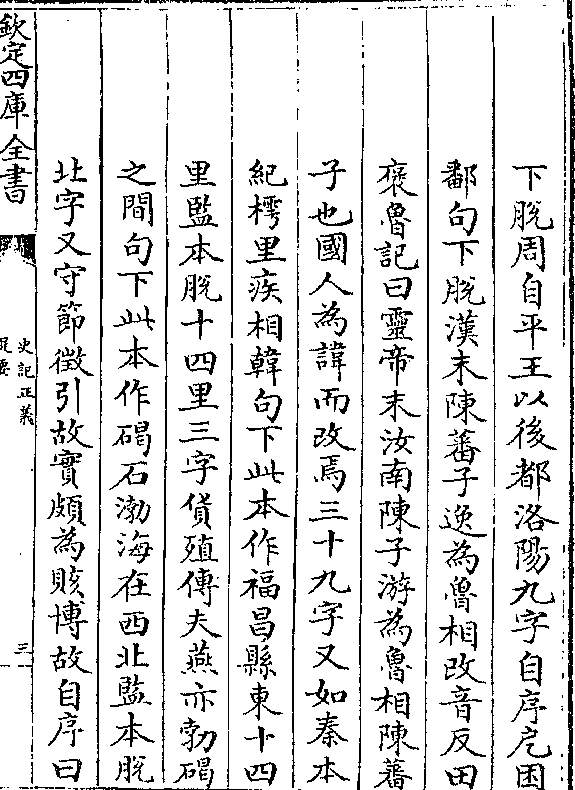 下脫周自平王以後都洛陽九字自序戹困
鄱句下脫漢末陳蕃子逸為魯相改音反田
褒魯記曰靈帝末汝南陳子游為魯相陳蕃
子也國人為諱而改焉三十九字又如秦本
紀樗里疾相韓句下此本作福昌縣東十四
里監本脫十四里三字貨殖傳夫燕亦勃碣
之間句下此本作碣石渤海在西北監本脫
北字又守節徵引故實頗為賅博故自序曰
欽定四庫全書
史記正義
提要
三